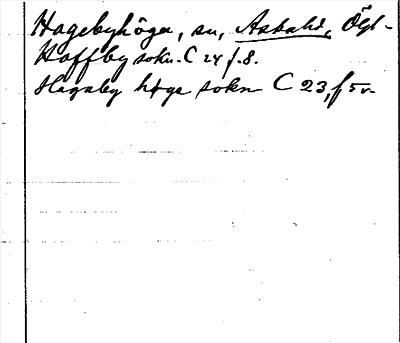 Hagebyhöga, sn, Aska hd, Ögl.
Haffby sokn. C 24 f. 8.
Hagaby høge sokn C 23, f 5 v.